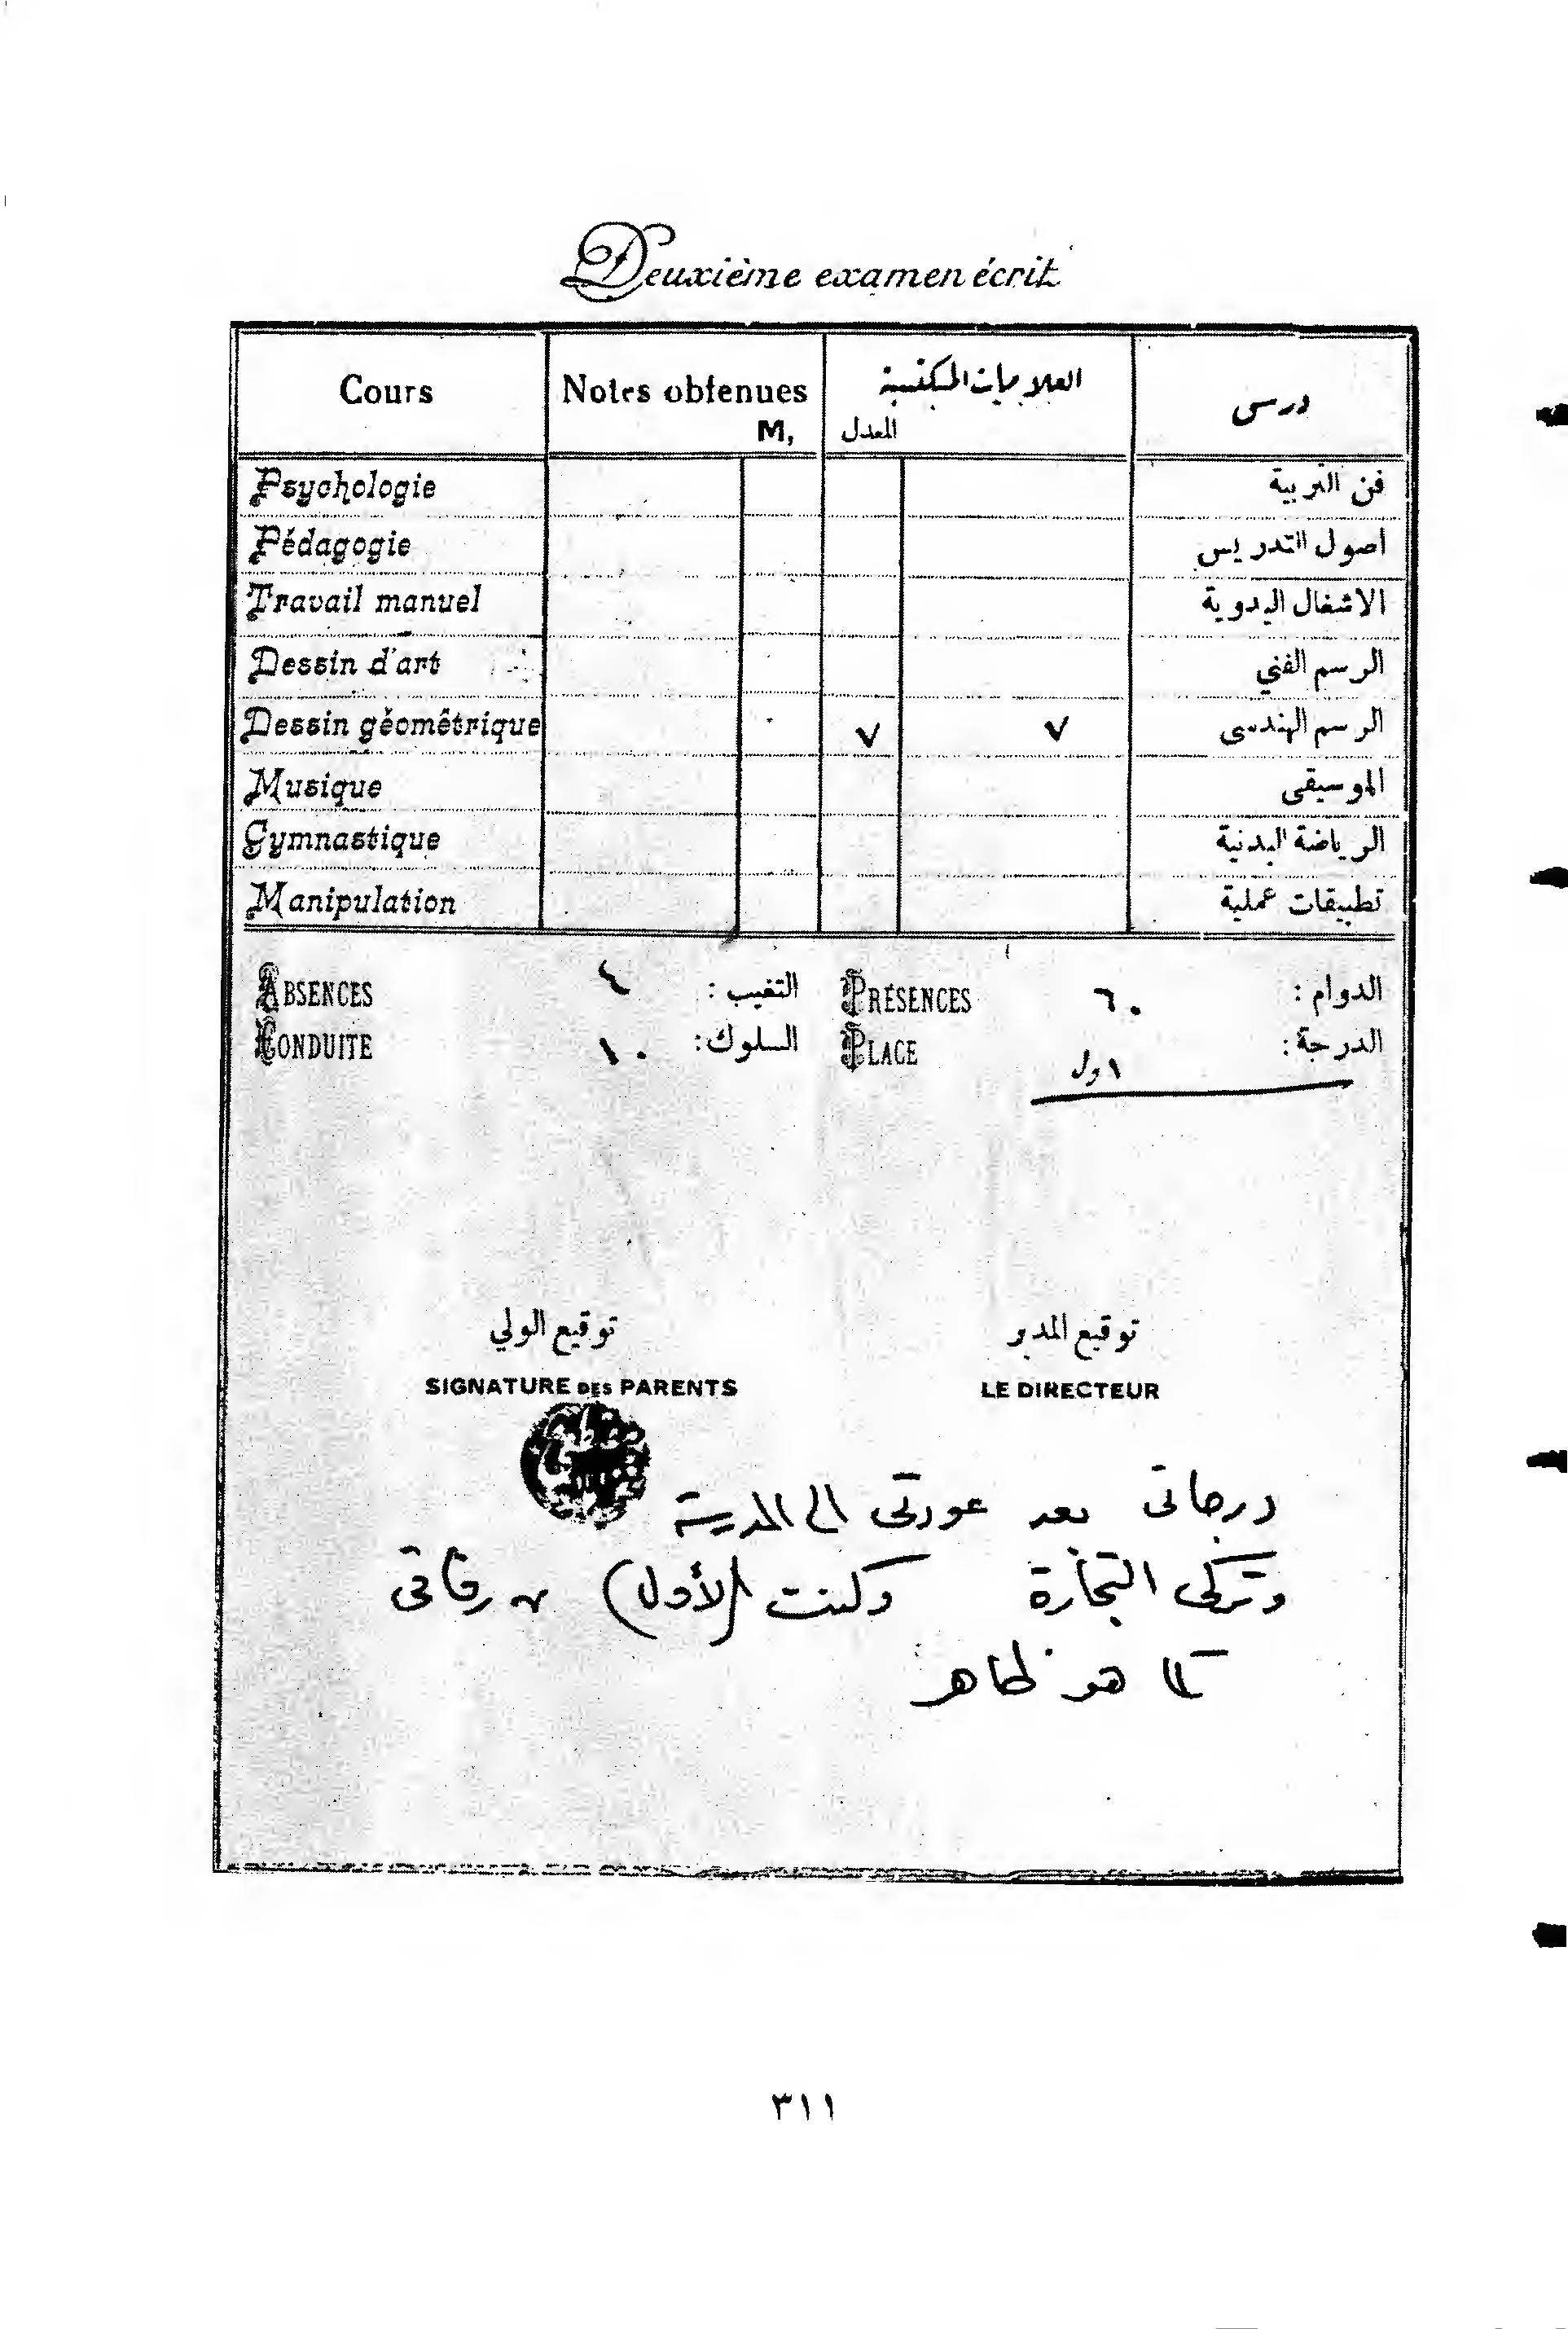 Deuxième examen écrit
Cours Notes obtenues العلامات المكتسبة درس
M, المعدل
Psychologie فن التربية
Pédagogie اصول التدريس
Travail manuel الاشغال اليدوية
Dessin d'art الرسم الفني
Dessin géométrique ٧ ٧ الرسم الهندسي
Musique الموسيقى
Gymnastique الرياضة البدنية
Manipulation تطبيقات عملية
ABSENCES ٤ التغيب : PRÉSENCES ٦٠ الدوام :
CONDUITE ١٠ السلوك : PLACE اول الدرجة :
توقيع الولي توقيع المدير
SIGNATURE DES PARENTS LE DIRECTEUR
درجاتي بعد عودتي الى المدرسة
وتركي التجارة وكنت (الأول) من رفاقي
كما هو ظاهر
٣١١